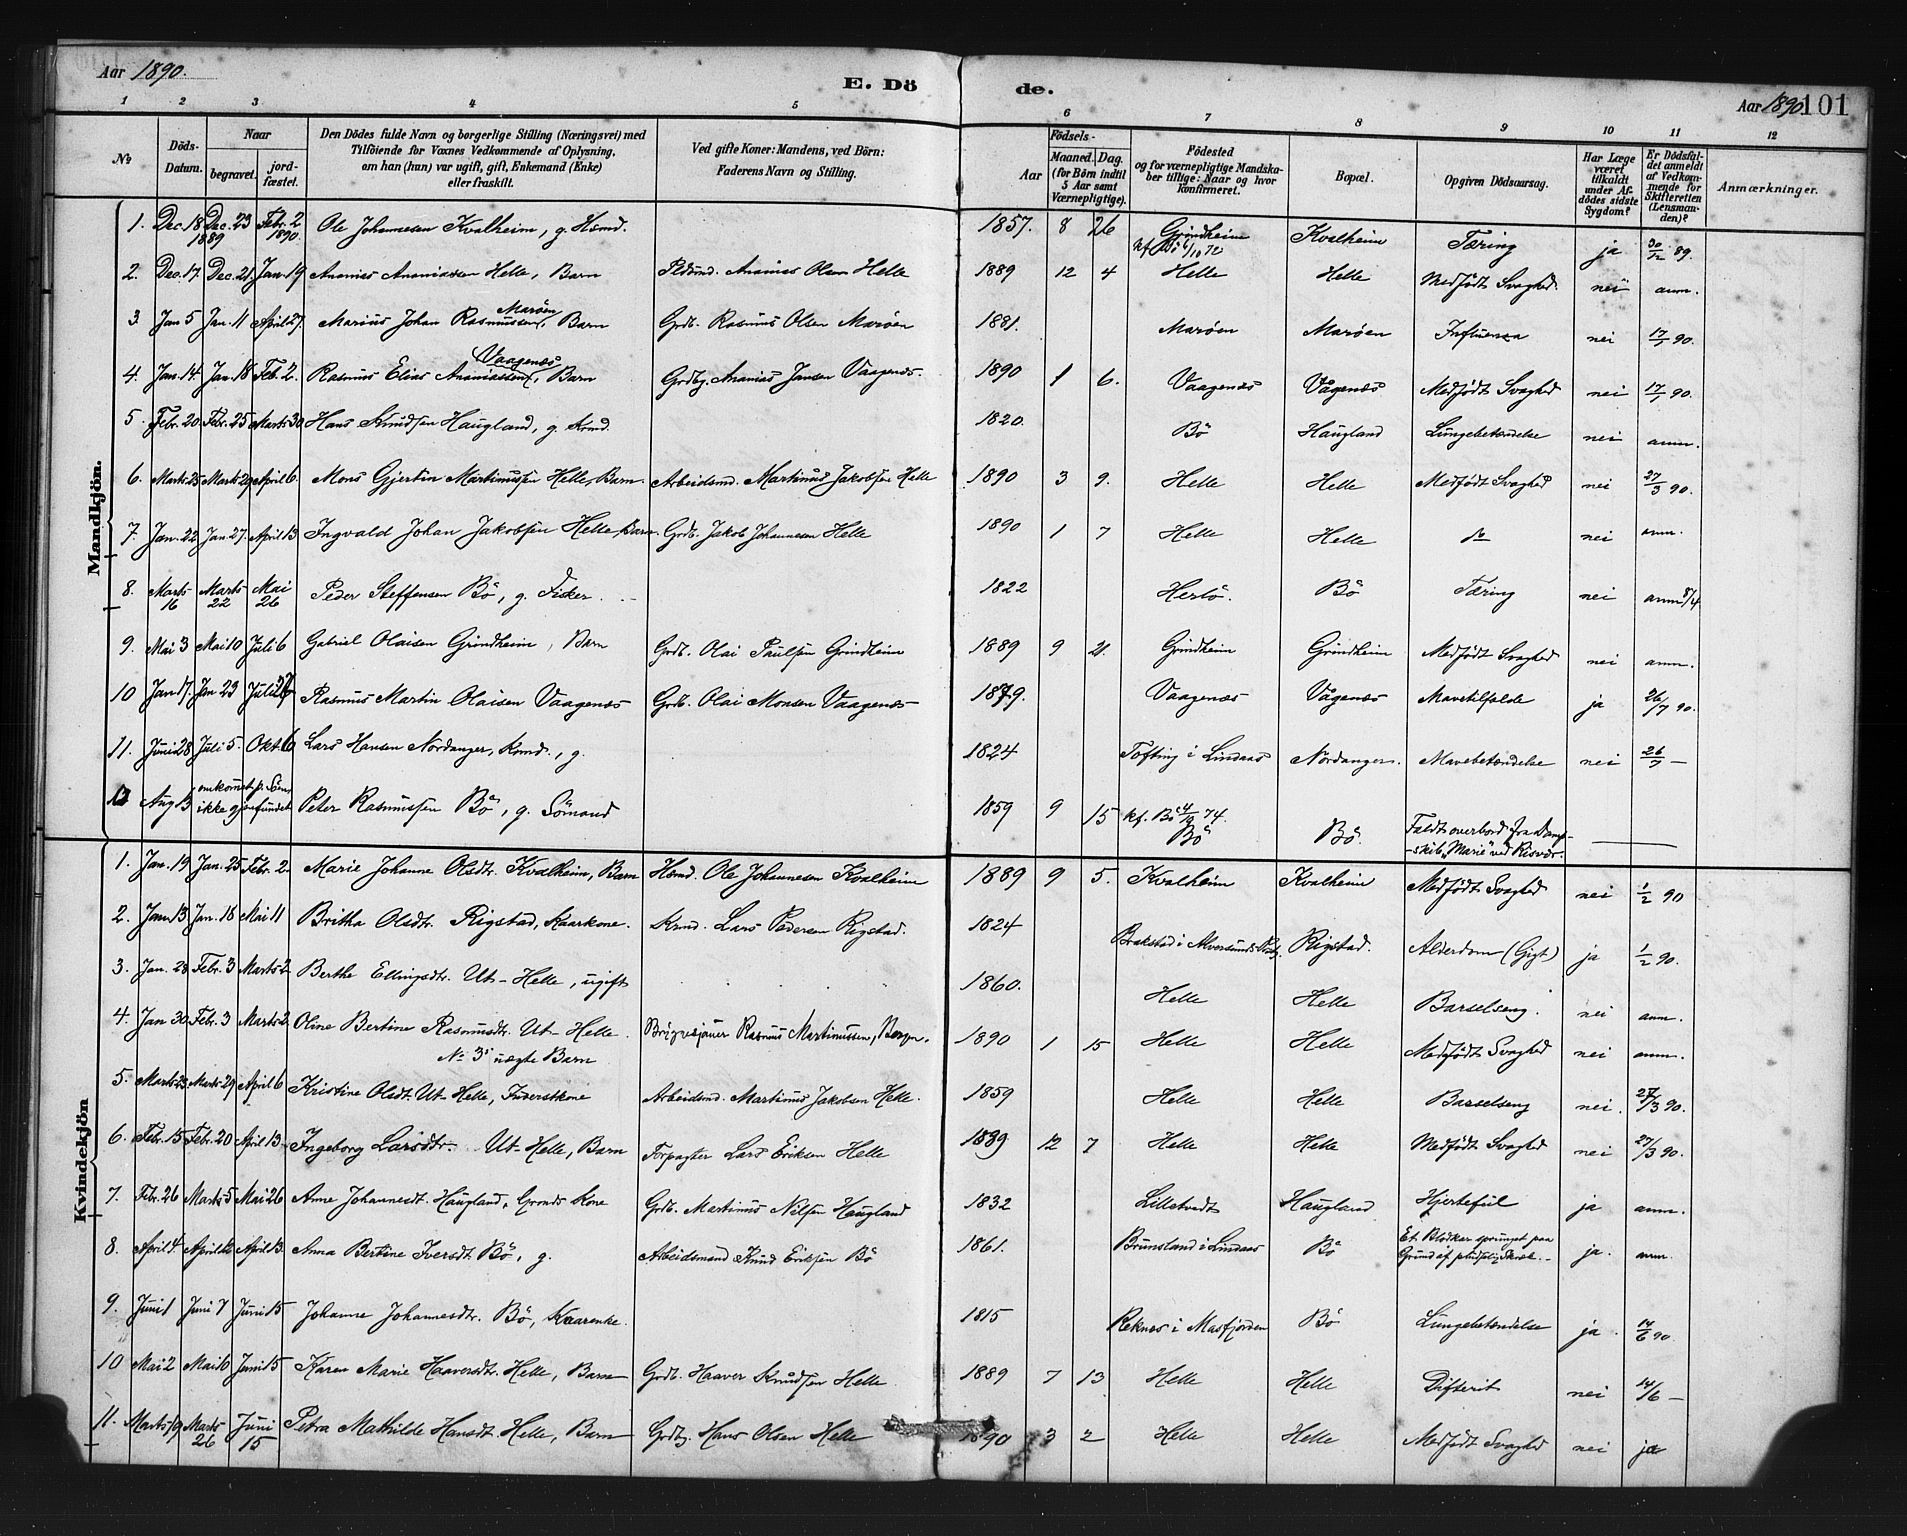 Aar 1890.
E. Dö de.
Aar 1890 101
1 2 3 4 5 6 7 8 9 10 11 12
№ Döds-Datum. Naar begravet. jordfæstet. Den Dödes fulde Navn og borgerlige Stilling (Næringsvei) med Tilföiende for Voxnes Vedkommende af Oplysning, om han (hun) var ugift, gift, Enkemand (Enke) eller fraskilt. Ved gifte Koner: Mandens, ved Börn: Faderens Navn og Stilling. Aar Födsels- Maaned. Dag. (for Börn indtil 5 Aar samt Værnepligtige). Födested og for værnepligtige Mandskaber tillige: Naar og hvor konfirmeret. Bopæl. Opgiven Dödsaarsag. Har Læge været tilkaldt under Afdödes sidste Sygdom? Er Dödsfaldet anmeldt af Vedkommende for Skifteretten (Lensmanden)? Anmærkninger.
Mandkjön.
1. Dec. 18 1889 Dec. 23 Febr. 2 1890. Ole Johannesen Kvalheim, g. Hsmd. 1857. 8 26 Grindheim kf. Bö 6/10 72 Kvalheim Tæring ja 30/12 89.
2. Dec. 17. Dec. 21. Jan. 19 Ananias Ananiassen Helle, Barn Ananias Olsen Helle 1889 12 4 Helle Helle Medfödt Svaghed. nei anm.
3. Jan 5 Jan. 11 April 27. Marius Johan Rasmussen Maröen, Barn Grdb. Rasmus Olsen Maröen 1881. Maröen Maröen Influenza nei 17/1 90.
4. Jan. 14. Jan. 18 Feb. 2. Rasmus Elias Ananiassen Vaagenæs, Barn Grdbg. Ananias Jansen Vaagenæs. 1890 1 6. Vaagenæs Vågenæs Medfödt Svaghed nei 17/1 90.
5. Febr. 20. Febr. 25 Marts 30 Hans Knudsen Haugland, g. Krmd. 1820. Bö Haugland Lungebetændelse nei anm.
6. Marts 25 Marts 29 April 6. Mons Gjertin Martinussen Helle, Barn. Arbeidsmd. Martinus Jakobsen Helle 1890 3 9. Helle Helle Medfödt Svaghed nei 27/3 90.
7. Jan. 22 Jan. 27. April 13 Ingvald Johan Jakobsen Helle, Barn. Grdb. Jakob Johannesen Helle 1890 1 7 Helle Helle do nei anm.
8. Marts 16 Marts 22 Mai 26 Peder Steffensen Bö, g. Fisker. 1822 Herlö. Bö Tæring nei anm 8/4
9. Mai 3 Mai 10 Juli 6 Gabriel Olaisen Grindheim, Barn Grdb. Olai Paulsen Grindheim 1889 9 21. Grindheim Grindheim Medfödt Svaghed nei anm.
10 Jan 17. Jan 23 Juli 27 Rasmus Martin Olaisen Vaagenæs Grdb. Olai Monsen Vaagenæs 1879. Vaagenæs Vågenæs Mavetilfælde ja 26/7 90.
11. Juni 28 Juli 5. Okt. 6 Lars Hansen Nordanger, Krmd., g. 1824 Tofting i Lindaas Nordanger. Mavebetændelse nei 26/7 —
Aug 13 omkomst p. Söen, ikke gjenfundet Peter Rasmussen Bö, g. Sömand 1859 9 15 kf. Bö 4/10 74. Bö Bö. Faldt overbord fra Dampskib „Marie“ ved Risvær.
Kvindekjön
1. Jan. 19 Jan. 25 Febr. 2. Marie Johanne Olsdtr. Kvalheim, Barn Hsmd. Ole Johannesen Kvalheim 1889 9 5. Kvalheim Kvalheim Medfödt Svaghed nei 1/2 90
2. Jan. 13 Jan. 18 Mai 11 Britha Olsdtr. Rigstad, Kaarkone. Krmd. Lars Pedersen Rigstad. 1824 Brakstad i Alversund Rigstad. Alderdom (Gigt) ja 1/2 90.
3. Jan. 28 Febr. 3 Marts 2 Berthe Ellingsdtr. Ut-Helle, ugift 1860. Helle Helle Barselseng. nei anm.
4. Jan 30 Febr. 3 Marts 2 Oline Bertine Rasmusdtr. Ut-Helle. No 3s uægte Barn Rasmus Martinussen, Bergen. 1890 1 15 Helle Helle Medfödt Svaghed nei anm.
5. Marts 23 Marts 29 April 6 Kristine Olsdt. Ut-Helle, Inderstkone Arbeidsmd. Martinus Jakobsen Helle. 1859 Helle Helle Barselseng nei. 27/3 90.
6. Febr. 15 Febr. 20 April 13 Ingeborg Larsdtr. Ut-Helle, Barn Forpagter Lars Eriksen Helle 1889 12 7 Helle Helle Medfödt Svaghed nei 27/3 90.
7. Febr. 26 Marts 5 Mai 26 Anne Johannesdt. Haugland, Grmds Kone Grdb. Martinus Nilsen Haugland 1832 Lilletvedt Haugland Hjertefeil ja anm.
8. April 4. April 12 April 13. Anna Bertine Iversdt. Bö, g. Arbeidsmand Knud Eriksen Bö 1861. Brunsland i Lindaas Bö Et Blodkar sprunget paa Grund af pludselig Skræk. ja. anm.
9. Juni 1 Juni 7 Juni 15 Johanne Johannesdtr. Bö, Kaarenke. 1815 Reknes i Masfjorden Bö Lungebetændelse ja 14/6 90
10 Mai 2 Mai 10 Juni 15 Karen Marie Haaversdtr. Helle, Barn Grdb. Haaver Knudsen Helle 1889 7 13 Helle Helle Difterit nei 14/6 —
11. Marts 19 Marts 26 Juni 15 Petra Mathilde Hansdt. Helle, Barn Grdbg. Hans Olsen Helle 1890 3 2 Helle Helle Medfödt Svaghed nei ja